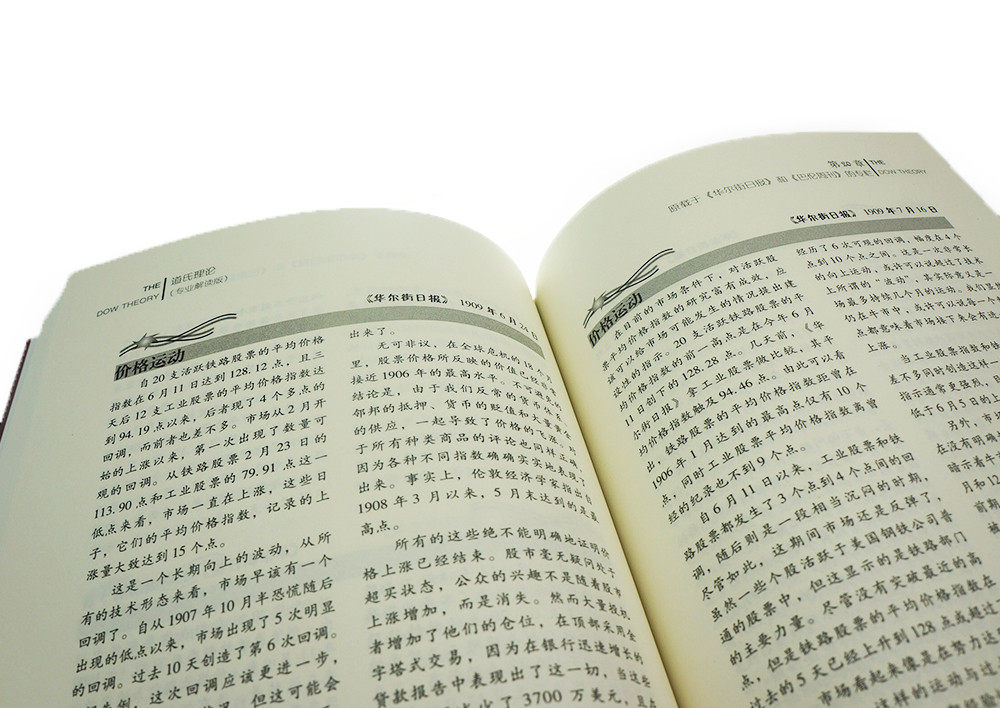 THE 道氏理论
DOW THEORY (专业解读版)
《华尔街日报》 1909年6月24日
价格运动
自20支活跃铁路股票的平均价格
指数在6月11日达到128.12点,且三
天后12支工业股票的平均价格指数达
到94.19点以来,后者现了4个多点的
回调,而前者也差不多。市场从2月开
始的上涨以来,第一次出现了数量可
观的回调。从铁路股票2月23日的
113.90点和工业股票的79.91点这一
低点来看,市场一直在上涨,这些日
子,它们的平均价格指数,记录的上
涨量大致达到15个点。
这是一个长期向上的波动,从所
有的技术形态来看,市场早该有一个
回调了。自从1907年10月半恐慌随后
出现的低点以来,市场出现了5次明显
的回调。过去10天创造了第6次回调。
这次回调应该更进一步,
但这可能会
出来了。
无可非议,在全球危机的18个月
里,股票价格所反映的价值已经非常
接近1906年的最高水平。不可避免的
结论是,由于我们反常的货币体系、
邻邦的抵押、货币的贬值和大量黄金
的供应,一起导致了价格的飞涨。对
于所有种类商品的评论也同样得出,
因为各种不同指数确确实实地表现了
出来。事实上,伦敦经济学家指出自
1908年3月以来,5月末达到的是最
高点。
所有的这些绝不能明确地证明价
格上涨已经结束。股市毫无疑问处于
超买状态,公众的兴趣不是随着股市
上涨增加,而是消失。然而大量投机
者增加了他们的仓位,在顶部采用金
字塔式交易,因为在银行迅速增长的
贷款报告中表现出了这一切,当这些
3700万美元,且在
第20章 THE
原载于《华尔街日报》和《巴伦周刊》的专栏 DOW THEORY
《华尔街日报》 1909年7月16日
价格运动
在目前的市场条件下,对活跃股
平均价格指数的研究富有成效,应
该可以给市场可能发生的情况提出建
设性的指示。20支活跃铁路股票的平
均价格指数的前一高点是在今年6月
11日创下的128.28点。几天前,《华
尔街日报》拿工业股票做比较,其平
均价格指数触及94.46点。由此可以看
出,铁路股票的平均价格指数距曾在
1906年1月达到的最高点仅有10个
点,同时工业股票平均价格指数离曾
经的纪录也不到9个点。
自6月11日以来,工业股票和铁
路股票都发生了3个点到4个点间的回
调,随后则是一段相当沉闷的时期,
尽管如此,这期间市场还是反弹了,
虽然一些个股活跃于美国钢铁公司普
通的股票中,但这显示的是铁路部门
的主要力量。尽管没有突破最近的高
点,但是铁路股票的平均价格指数在
过去的5天已经上升到128点或超过
市场看起来像是在努力达
这样的运动与过
经历了6次可观的回调,幅度在4个
点到10个点之间,这是一次非常长
的向上运动,或许可以说超过了战
上所谓的“波动”,其实际意义是一
场最多持续几个月的运动。我们显然
仍在牛市中,或许可以说每一个
点都意味着市场接下来会再造
上涨。
当工业股票指数和铁
差不多同时创造这样
指示通常更强烈,
低于6月5日的
另外,市
在没有明确
暗示着牛
月和12
前期